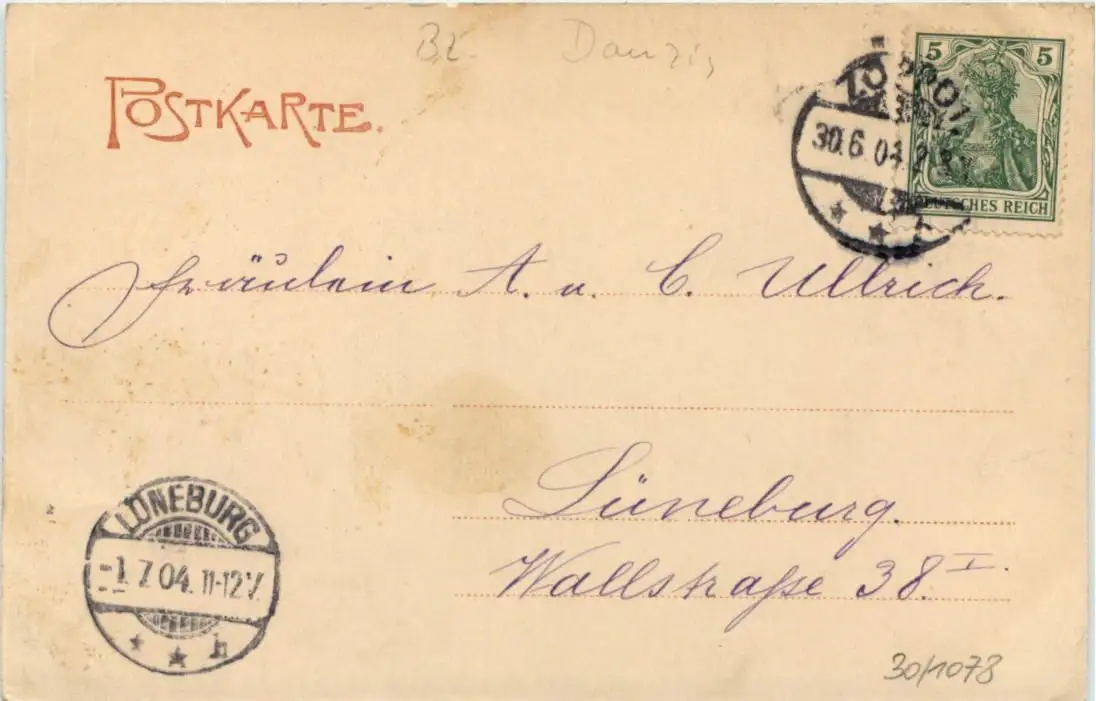 Bz. Danzig
POSTKARTE.
5 5
DEUTSCHES REICH
ZOPPOT
30.6.04
Fräulein A. u. C. Ullrich.
Lüneburg.
Wallstraße 38 I.
LÜNEBURG
-1.7.04. 11-12 V.
* * h
30/1078